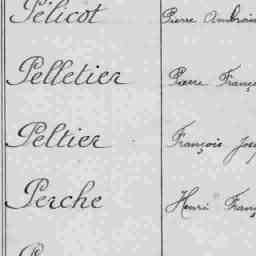 Pélicot Pierre Ambroise
Pelletier Pierre Franç
Peltier François Jos
Perche Henri Franç